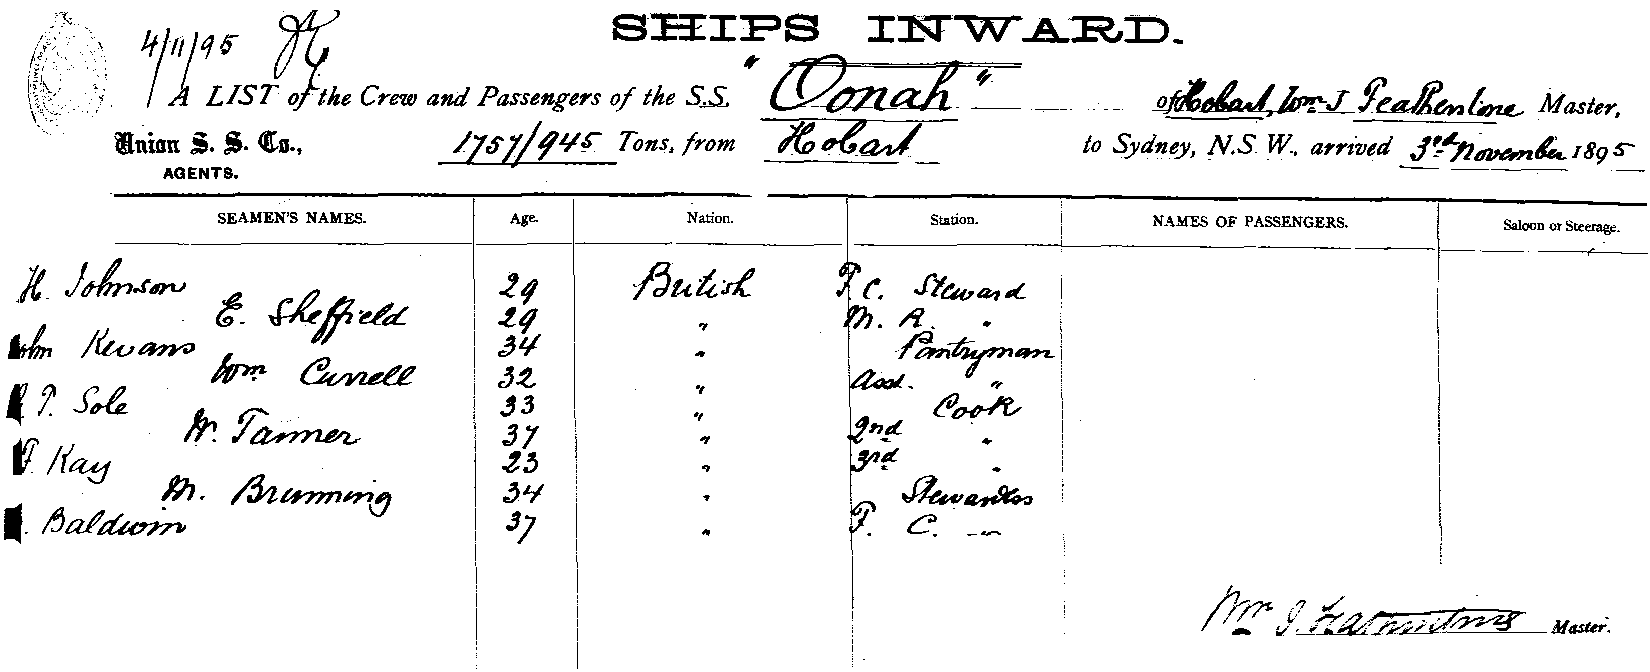 SHIPS INWARD.
4/11/95
A LIST of the Crew and Passengers of the S.S. "Oonah" of Hobart, Wm J Featherstone Master,
Union S. S. Co., 1757/945 Tons, from Hobart to Sydney, N.S.W., arrived 3rd November 1895
AGENTS.
SEAMEN'S NAMES. Age. Nation. Station. NAMES OF PASSENGERS. Saloon or Steerage.
H. Johnson 29 British F. C. Steward
E. Sheffield 29 " M. A. "
John Kevans 34 " Pantryman
Wm Currell 32 " Asst. "
T. Sole 33 " Cook
W. Tanner 37 " 2nd "
F. Kay 23 " 3rd "
M. Brunning 34 " Stewardess
Baldwin 37 " F. C. "
Wm J. Featherstone Master.